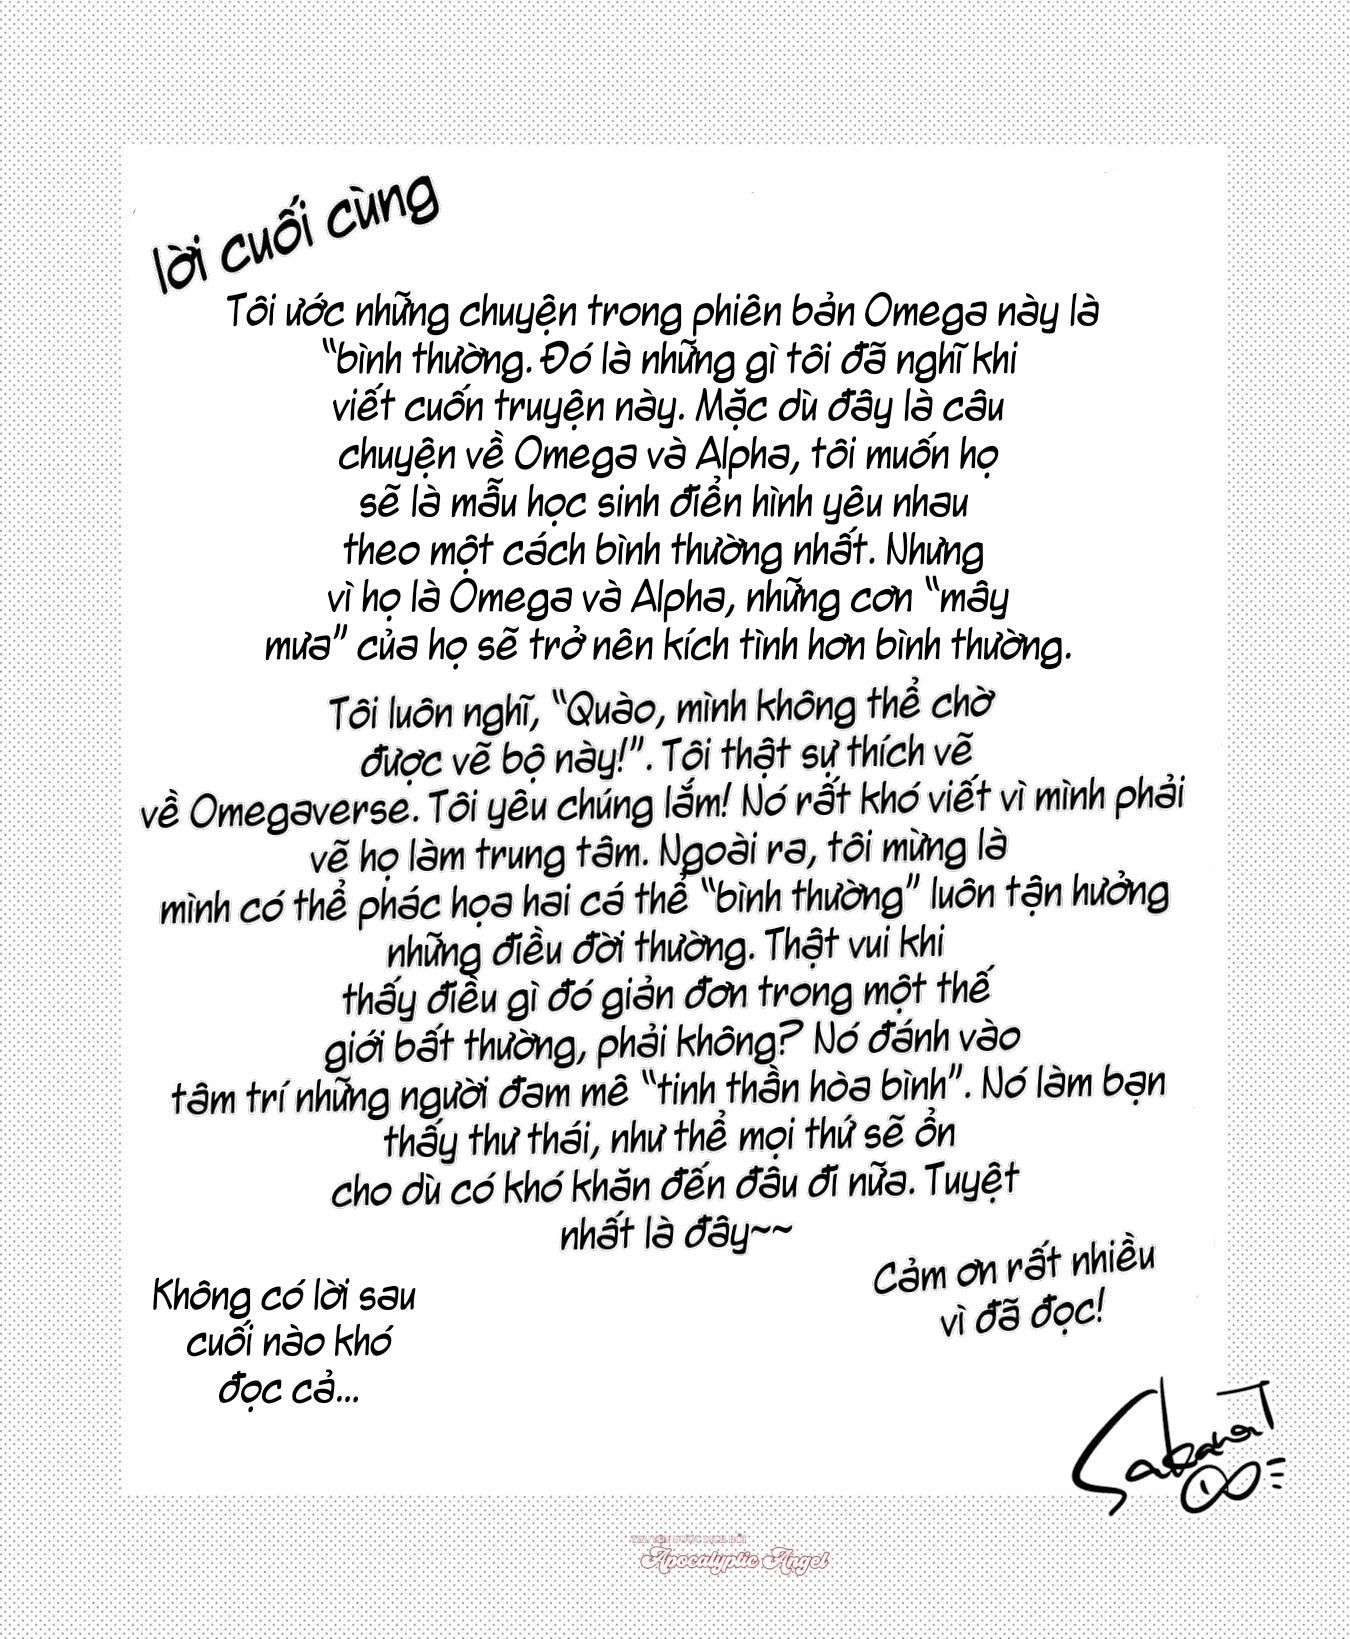 lời cuối cùng
Tôi ước những chuyện trong phiên bản Omega này là
“bình thường. Đó là những gì tôi đã nghĩ khi
viết cuốn truyện này. Mặc dù đây là câu
chuyện về Omega và Alpha, tôi muốn họ
sẽ là mẫu học sinh điển hình yêu nhau
theo một cách bình thường nhất. Nhưng
vì họ là Omega và Alpha, những cơn “mây
mưa” của họ sẽ trở nên kích tình hơn bình thường.
Tôi luôn nghĩ, “Quào, mình không thể chờ
được vẽ bộ này!”. Tôi thật sự thích vẽ
về Omegaverse. Tôi yêu chúng lắm! Nó rất khó viết vì mình phải
vẽ họ làm trung tâm. Ngoài ra, tôi mừng là
mình có thể phác họa hai cá thể “bình thường” luôn tận hưởng
những điều đời thường. Thật vui khi
thấy điều gì đó giản đơn trong một thế
giới bất thường, phải không? Nó đánh vào
tâm trí những người đam mê “tinh thần hòa bình”. Nó làm bạn
thấy thư thái, như thể mọi thứ sẽ ổn
cho dù có khó khăn đến đâu đi nữa. Tuyệt
nhất là đây~~
Cảm ơn rất nhiều
vì đã đọc!
Không có lời sau
cuối nào khó
đọc cả...
SakanaT
TRUYỆN ĐƯỢC DỊCH BỞI
Apocalyptic Angel